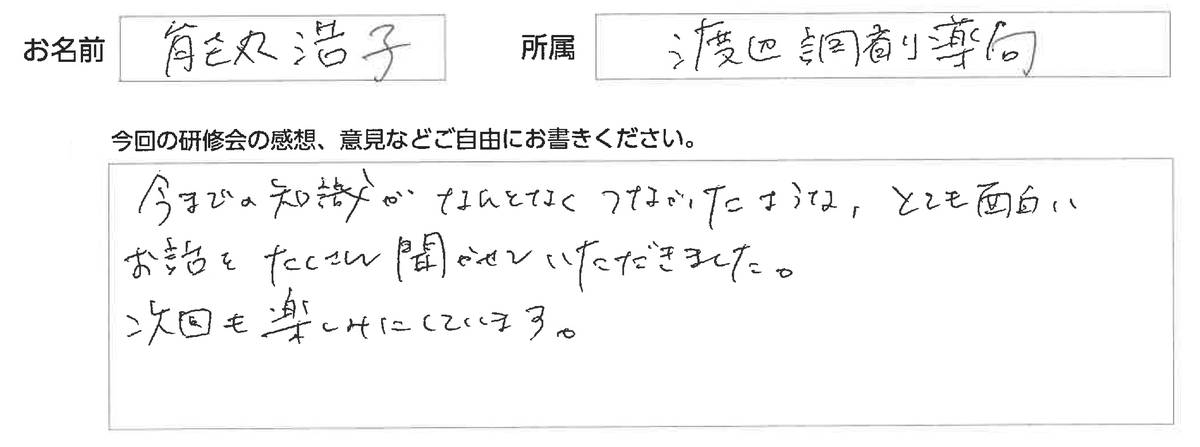 お名前 能丸浩子 所属 渡辺調剤薬局
今回の研修会の感想、意見などご自由にお書きください。
今までの知識がなんとなくつながったような、とても面白い
お話をたくさん聞かせていただきました。
次回も楽しみにしています。